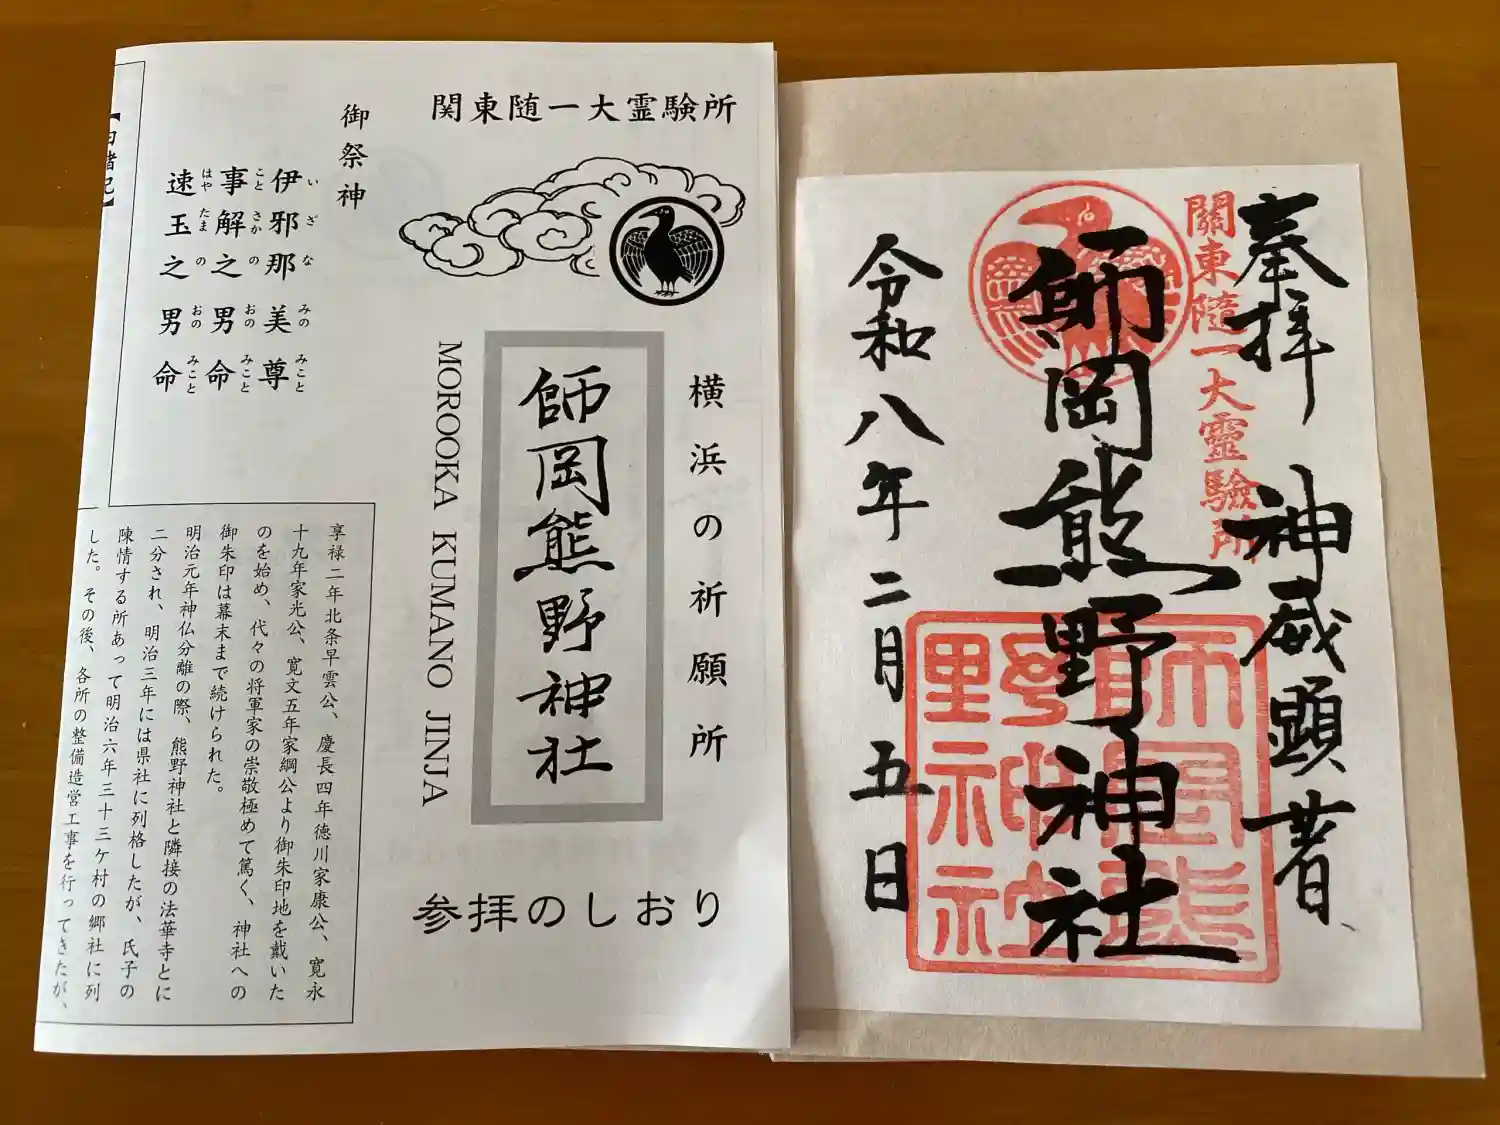 関東随一大霊験所
横浜の祈願所
師岡熊野神社
MOROOKA KUMANO JINJA
参拝のしおり
御祭神
伊邪那美尊
いざなみのみこと
事解之男命
ことさかのおのみこと
速玉之男命
はやたまのおのみこと
享禄二年北条早雲公、慶長四年徳川家康公、寛永
十九年家光公、寛文五年家綱公より御朱印地を戴いた
のを始め、代々の将軍家の崇敬極めて篤く、神社への
御朱印は幕末まで続けられた。
明治元年神仏分離の際、熊野神社と隣接の法華寺とに
二分され、明治三年には県社に列格したが、氏子の
陳情する所あって明治六年三十三ケ村の郷社に列
した。その後、各所の整備造営工事を行ってきたが、
奉拝 神威顕著
關東随一大靈驗所
師岡熊野神社
令和八年二月五日
師岡熊
野神社